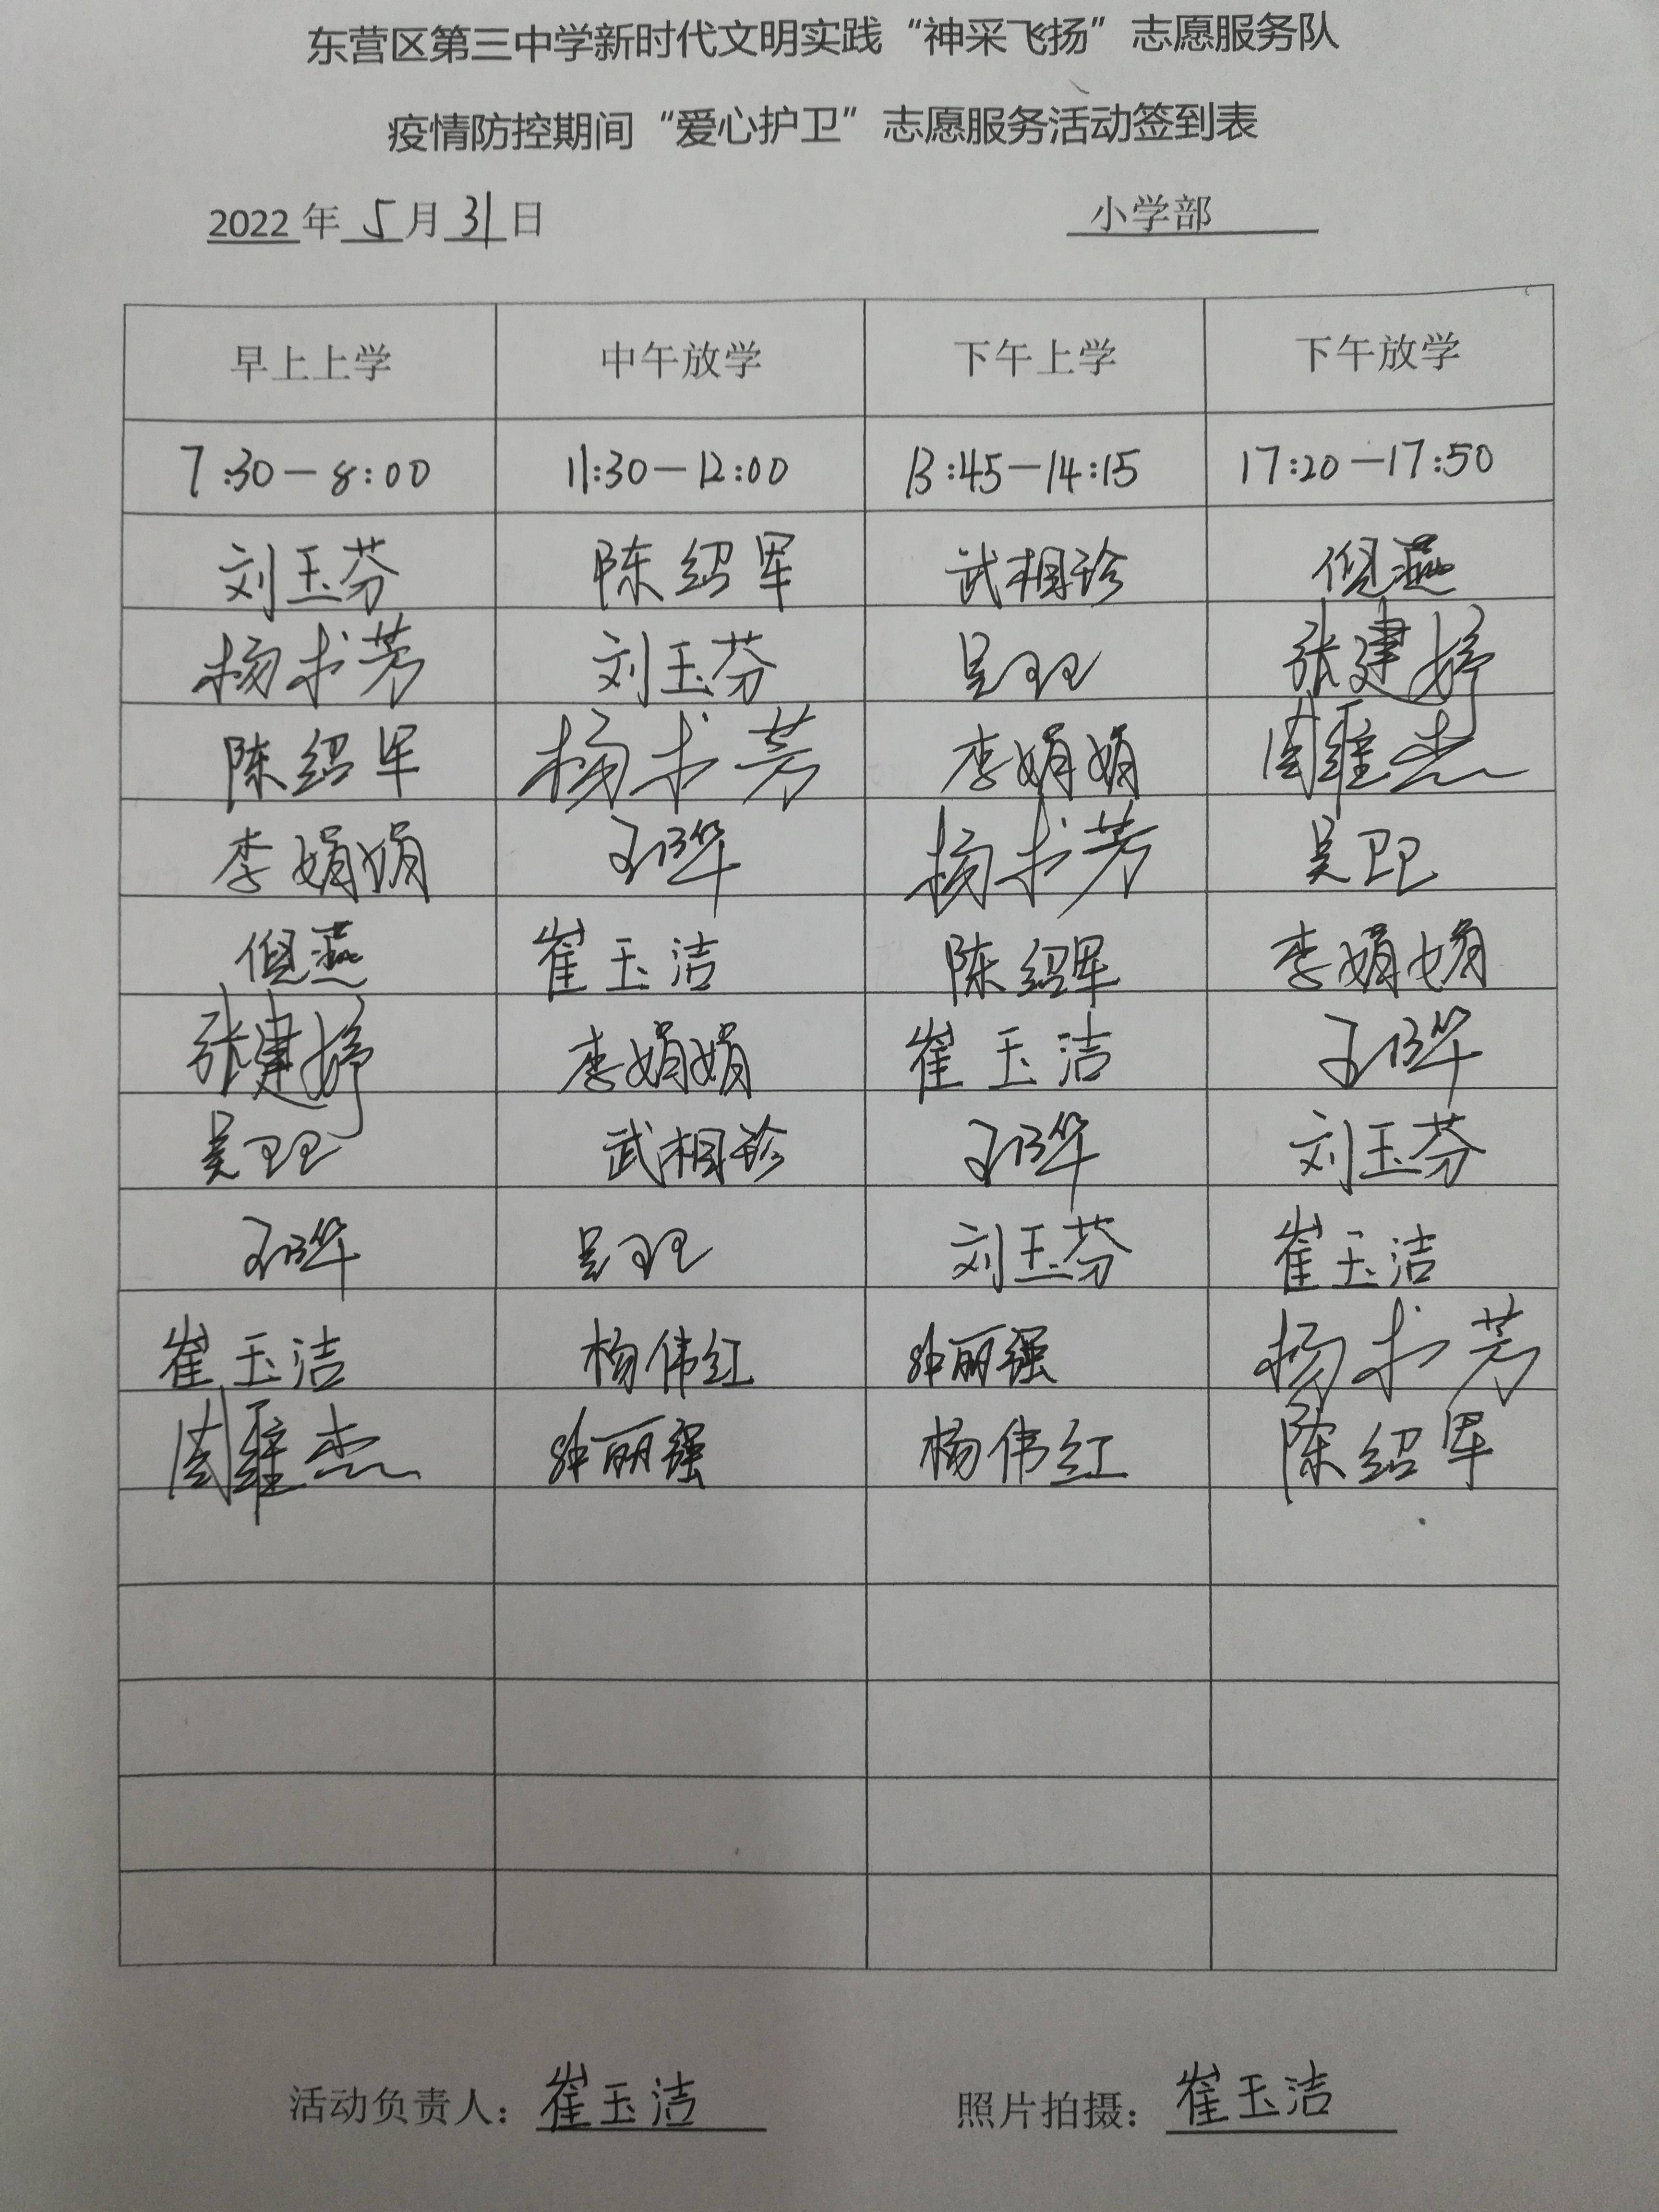 东营区第三中学新时代文明实践“神采飞扬”志愿服务队
疫情防控期间“爱心护卫”志愿服务活动签到表
2022年5月31日 小学部
早上上学 中午放学 下午上学 下午放学
7:30-8:00 11:30-12:00 13:45-14:15 17:20-17:50
刘玉芬 陈绍军 武相珍 倪燕
杨书芳 刘玉芬 吴 张建婷
陈绍军 杨书芳 李娟娟 周维杰
李娟娟 王晔 杨书芳 吴
倪燕 崔玉洁 陈绍军 李娟娟
张建婷 李娟娟 崔玉洁 王晔
吴 武相珍 王晔 刘玉芬
王晔 吴 刘玉芬 崔玉洁
崔玉洁 杨伟红 丽强 杨书芳
周维杰 丽强 杨伟红 陈绍军
活动负责人：崔玉洁 照片拍摄：崔玉洁